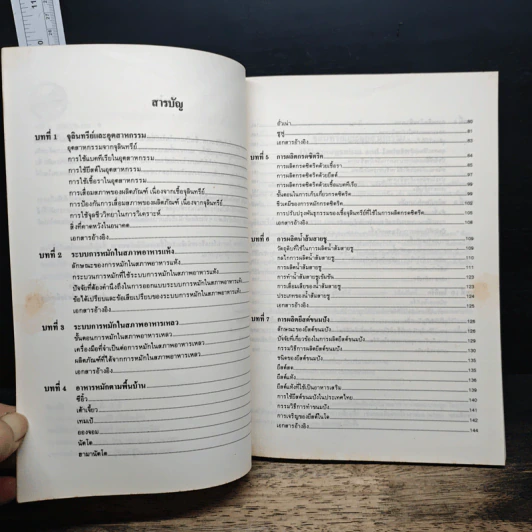 สารบัญ
บทที่ 1 จุลินทรีย์และอุตสาหกรรม
อุตสาหกรรมจากจุลินทรีย์
การใช้แบคทีเรียในอุตสาหกรรม
การใช้ยีสต์ในอุตสาหกรรม
การใช้เชื้อราในอุตสาหกรรม
การเสื่อมสภาพของผลิตภัณฑ์ เนื่องจากเชื้อจุลินทรีย์
การป้องกันการเสื่อมสภาพของผลิตภัณฑ์ เนื่องจากจุลินทรีย์
การใช้จุลชีววิทยาในการวิเคราะห์
สิ่งที่คาดหวังในอนาคต
เอกสารอ้างอิง
บทที่ 2 ระบบการหมักในสภาพอาหารแห้ง
ลักษณะของการหมักในสภาพอาหารแห้ง
กระบวนการหมักที่ใช้ระบบการหมักในสภาพอาหารแห้ง
ปัจจัยที่ต้องคำนึงถึงในการออกแบบระบบการหมักในสภาพอาหารแห้ง
ข้อได้เปรียบและข้อเสียเปรียบของระบบการหมักในสภาพอาหารแห้ง
เอกสารอ้างอิง
บทที่ 3 ระบบการหมักในสภาพอาหารเหลว
ขั้นตอนการหมักในสภาพอาหารเหลว
เครื่องมือที่จำเป็นต่อการหมักในสภาพอาหารเหลว
ผลิตภัณฑ์ที่ได้จากการหมักในสภาพอาหารเหลว
เอกสารอ้างอิง
บทที่ 4 อาหารหมักตามพื้นบ้าน
ซีอิ๊ว
เต้าเจี้ยว
เทมเป้
ออนจอม
นัตโต
ฮามานัตโต
ถั่วเน่า 80
ซูฟู 82
เอกสารอ้างอิง 91
บทที่ 5 การผลิตกรดซิตริค 94
การผลิตกรดซิตริคด้วยเชื้อรา
การผลิตกรดซิตริคด้วยยีสต์
การผลิตกรดซิตริคด้วยเชื้อแบคทีเรีย
ขั้นตอนในการเก็บเกี่ยวกรดซิตริค
ชีวเคมีของการหมักกรดซิตริค
การปรับปรุงพันธุกรรมของเชื้อจุลินทรีย์ที่ใช้ในการผลิตกรดซิตริค
เอกสารอ้างอิง
บทที่ 6 การผลิตน้ำส้มสายชู 109
วัตถุดิบที่ใช้ในการผลิตน้ำส้มสายชู
กลไกการผลิตน้ำส้มสายชู
การผลิตน้ำส้มสายชู
การทำน้ำส้มสายชูเข้มข้น
การเสื่อมเสียของน้ำส้มสายชู
ประเภทของน้ำส้มสายชู
เอกสารอ้างอิง 125
บทที่ 7 การผลิตยีสต์ขนมปัง 128
ลักษณะของยีสต์ขนมปัง
ปัจจัยที่เกี่ยวข้องในการผลิตยีสต์ขนมปัง
กรรมวิธีการผลิตยีสต์ขนมปัง
ชนิดของยีสต์ขนมปัง
ยีสต์สด
ยีสต์แห้ง
ยีสต์แห้งที่ใช้เป็นอาหารเสริม 139
การใช้ยีสต์ขนมปังในประเทศไทย
กรรมวิธีการทำขนมปัง 140
การเจริญของยีสต์ในโด
เอกสารอ้างอิง